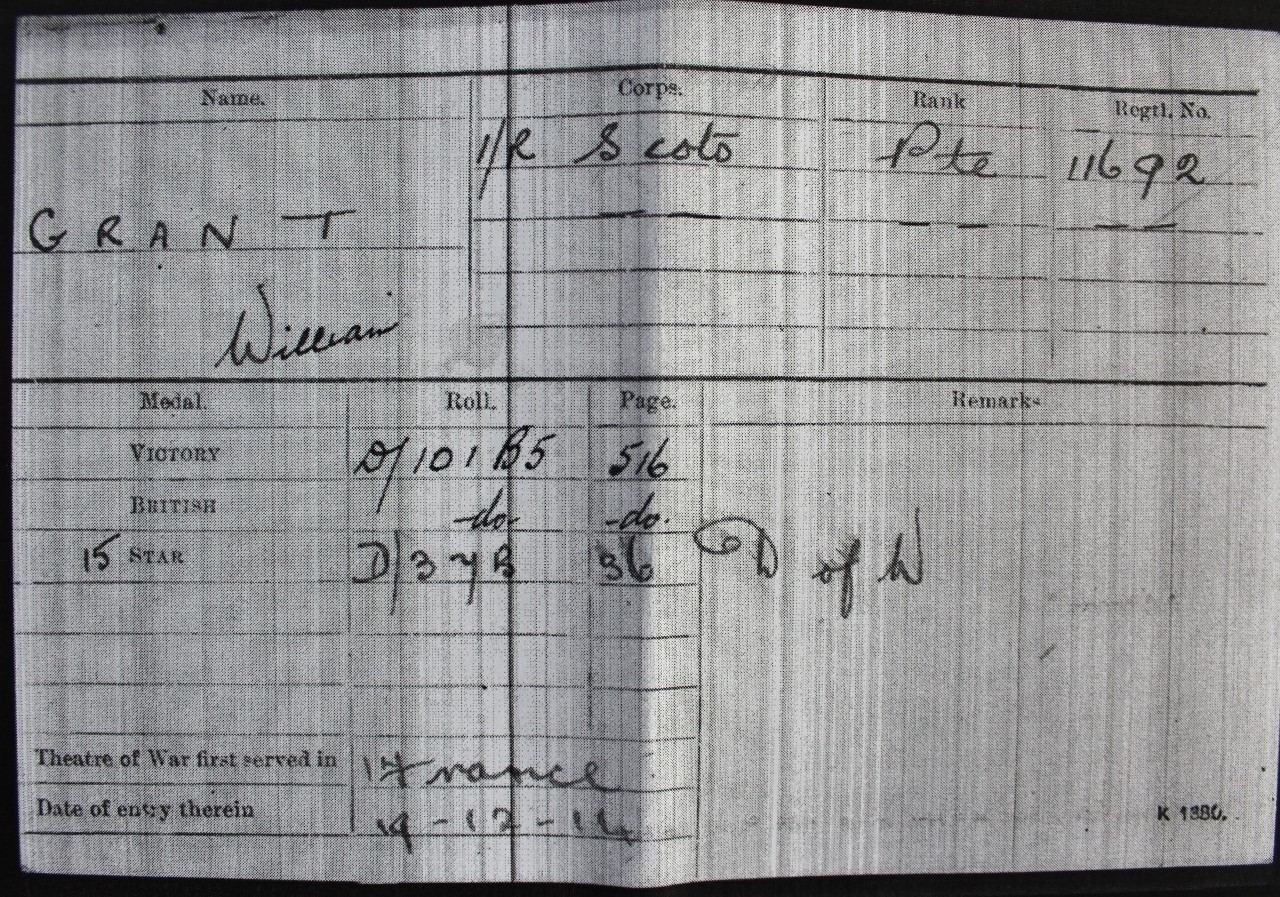 Name. Corps. Rank Regtl. No.
1/R Scots Pte 11692
GRANT
William
Medal. Roll. Page. Remarks
VICTORY D/101 B5 516
BRITISH -do- -do.
15 STAR D/37B 36 D of W
Theatre of War first served in France
Date of entry therein -12-14
K 1380.